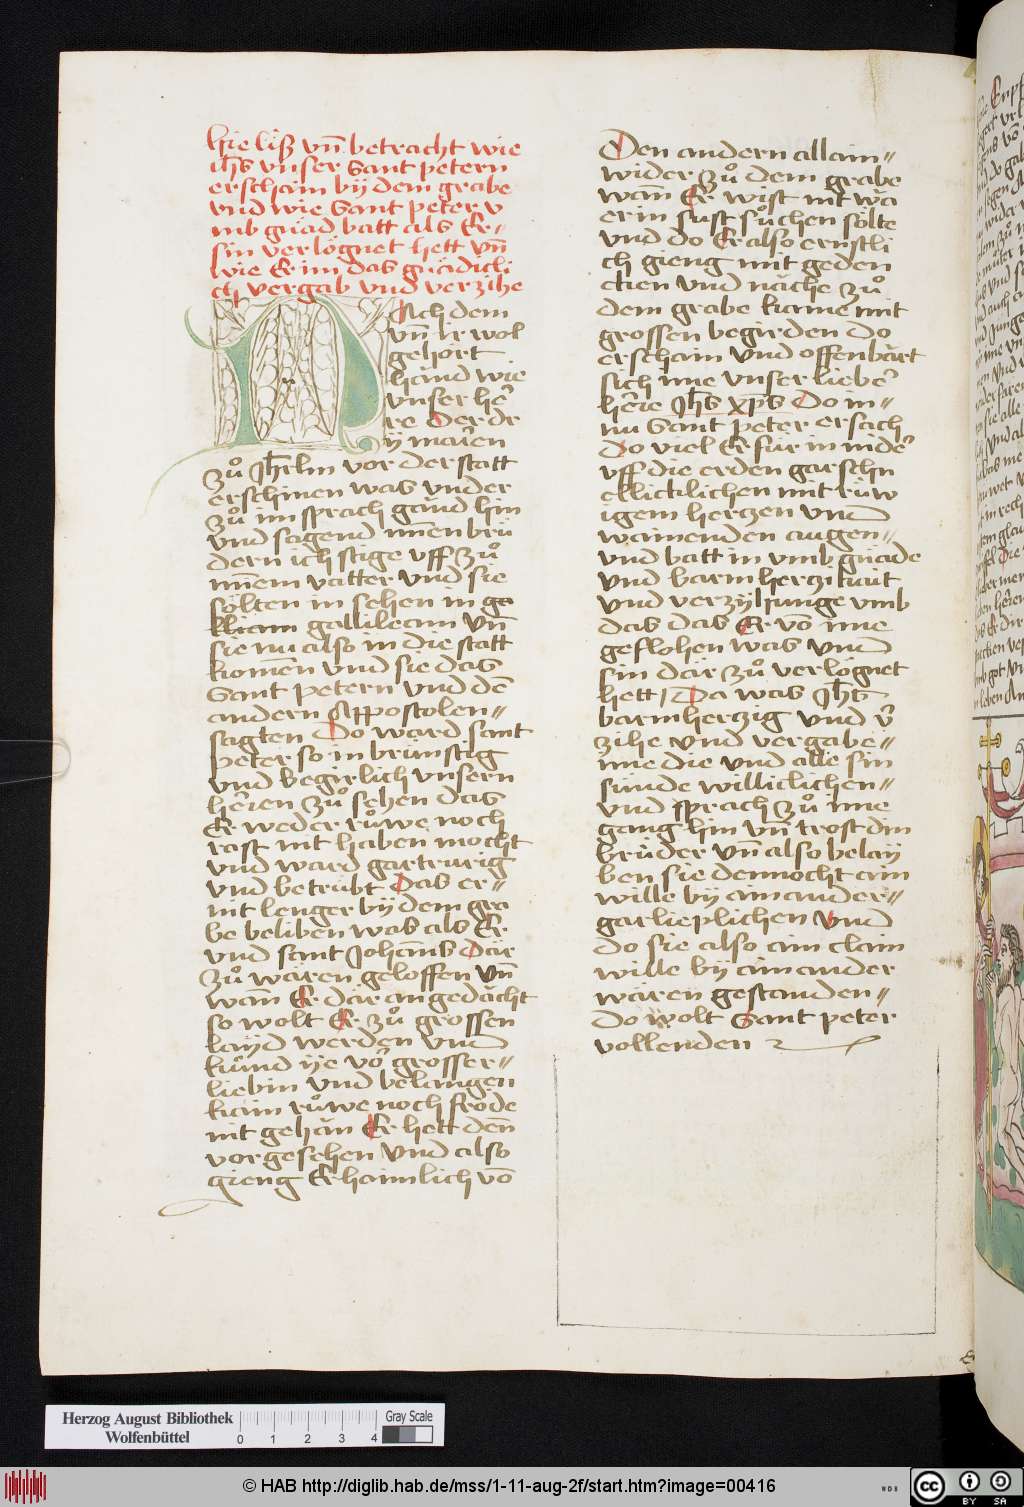 hie liß vn̄ betracht wie
ih̄s vnser Sant petern
erschain bÿ dem grabe
vnd wie Sant peter v
mb gnād batt als Er⸗
sin verlögnet hett vn̄
wie Er im das gnädicli
ch vergab vnd verzihe
NAch dem
vn̄ ir wol
gehört
händ wie
vnser her̄
re Der dr
ÿ mar̄en
zů Jh̄rlm vor der statt
erschinen was vnder
zů im sprach gänd hin
vnd sagend minen brü
dern ich stige vff zů
minem vatter vnd sie
sölten in sehen in ga
lileam gallileam vn̄
sie nu also in die statt
komen vnd sie das
Sant petern vnd dē
andern Appostolen⸗
sagten Do ward sant
peter so in brünstig
vnd begirlich vnsern
herren zů sehen das
Er weder růwe noch
rast nit haben mocht
vnd ward gar trurig
vnd betrübt Das er⸗
nit lenger bÿ dem gra
be beliben was als Er
vnd sant Johan̄s Där
zů wären geloffen vn̄
wan Er där an gedächt
so wolt Er zů grossen
laÿd werden vnd
kund ÿe vor grosser⸗
liebin vnd belangen
kain růwe noch fröde
nit gehān Er hett denn
vor gesehen vnd also
gieng Er hainlich vō
Den andern allain⸗
wider zů dem grabe
wan̄ Er wist nit wa
er in sust sůchen sölte
vnd do Er also ernstli
ch gieng mit geden
cken vnd näche zů
dem grabe kame mit
grossen begirden do
erschain vnd offenbärt
sich ime vnser lieber
herre Jh̄s xp̄s Do in⸗
nu Sant peter ersach
do viel Er für in nider
vff die erden gar schn
ellicklichen mit rüw
igem herczen vnd
wainenden augen⸗
vnd batt in vmb gnäde
vnd barmherczikait
vnd verzÿhunge vmb
das das Er vō ime
geflohen was vnd
sin där zů verlögnet
hett Da was Jh̄s
barmherczig vnd v̄
zihe vnd vergabe⸗
ime die vnd alle sin
sünde williclichen⸗
vnd sprach zů ime
gang hin vn̄ trost din
brüder vn̄ also belay
ben sie dennocht ain
wille bÿ ain ander⸗
gar lieplichen vnd
do sie also ain clain
wille bÿ ain ander
wären gestanden⸗
do wolt Sant peter
vollenden
Herzog August Bibliothek
Wolfenbüttel
0 1 2 3 4
Gray Scale
© HAB http://diglib.hab.de/mss/1-11-aug-2f/start.htm?image=00416
WDB
CC BY SA